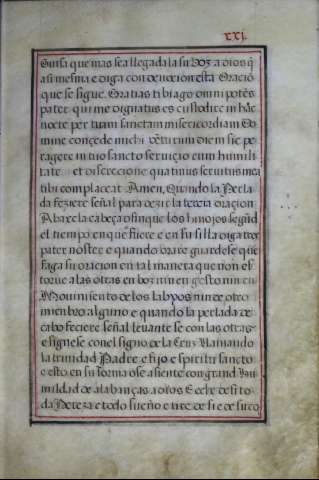 xxj.
Guisa que mas sea llegada la su boz a dios q̄
a si mesma e diga con deuoción esta Oració
que se sigue. Gratias tibi ago omnipotēs
pater qui me dignatus es custodire in hāc
nocte per tuam sanctam misericordiam Do
mine concede michi vēturum diem sic pe
ragere in tuo sancto seruicio cum humili
tate et discrecione quatinus seruitus mea
tibi complaceat Amen. Quando la Perla
da feziere señal para dezir la tercia oracion
Abaxe la cabeça o finque los hinojos segūd
el tiempo en que fuere e en su silla diga tres
pater nostre e quando orare guardese que
faga su oracion en tal manera que non es
torue a las otras en boz nin en gesto nin en
Mouimiento de los labyos nin de otro
miembro alguno e quando la perlada de
cabo feciere señal leuante se con las otras
e sígnese con el signo de la Cruz Llamando
la trinidad Padre e fijo e spiritu sancto
e esto en su forma o se asiente con grand Hu
mildad de alabanças a dios E eche de si to
da Pereza e todo sueño e tire de si